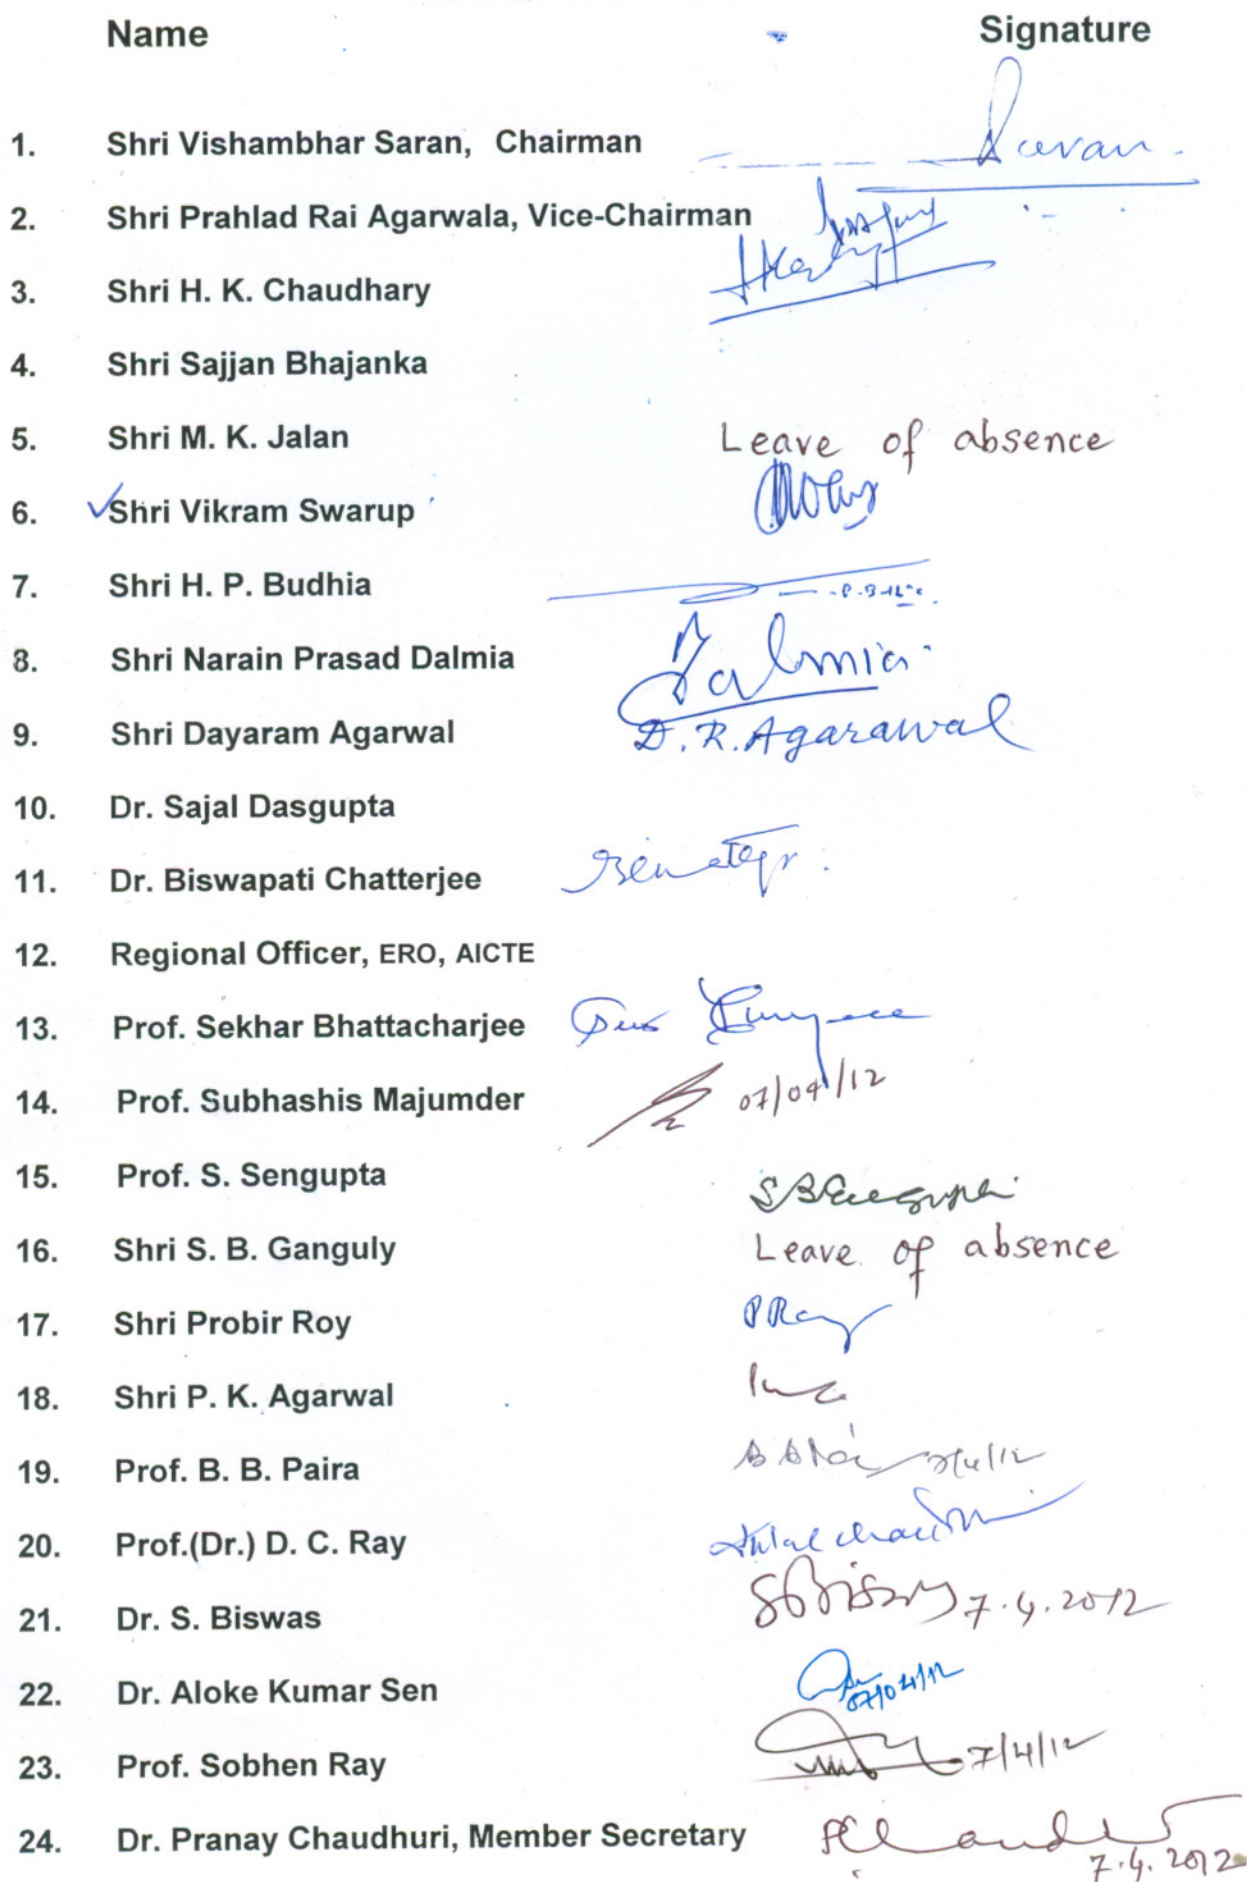 Name Signature
1. Shri Vishambhar Saran, Chairman Saran
2. Shri Prahlad Rai Agarwala, Vice-Chairman
3. Shri H. K. Chaudhary
4. Shri Sajjan Bhajanka
5. Shri M. K. Jalan Leave of absence
6. Shri Vikram Swarup
7. Shri H. P. Budhia
8. Shri Narain Prasad Dalmia Dalmia
9. Shri Dayaram Agarwal D. R. Agarawal
10. Dr. Sajal Dasgupta
11. Dr. Biswapati Chatterjee
12. Regional Officer, ERO, AICTE
13. Prof. Sekhar Bhattacharjee
14. Prof. Subhashis Majumder 07/04/12
15. Prof. S. Sengupta
16. Shri S. B. Ganguly Leave of absence
17. Shri Probir Roy PRoy
18. Shri P. K. Agarwal
19. Prof. B. B. Paira 7/4/12
20. Prof.(Dr.) D. C. Ray
21. Dr. S. Biswas SBiswas 7.4.2012
22. Dr. Aloke Kumar Sen 07/04/12
23. Prof. Sobhen Ray 7/4/12
24. Dr. Pranay Chaudhuri, Member Secretary
7.4.2012